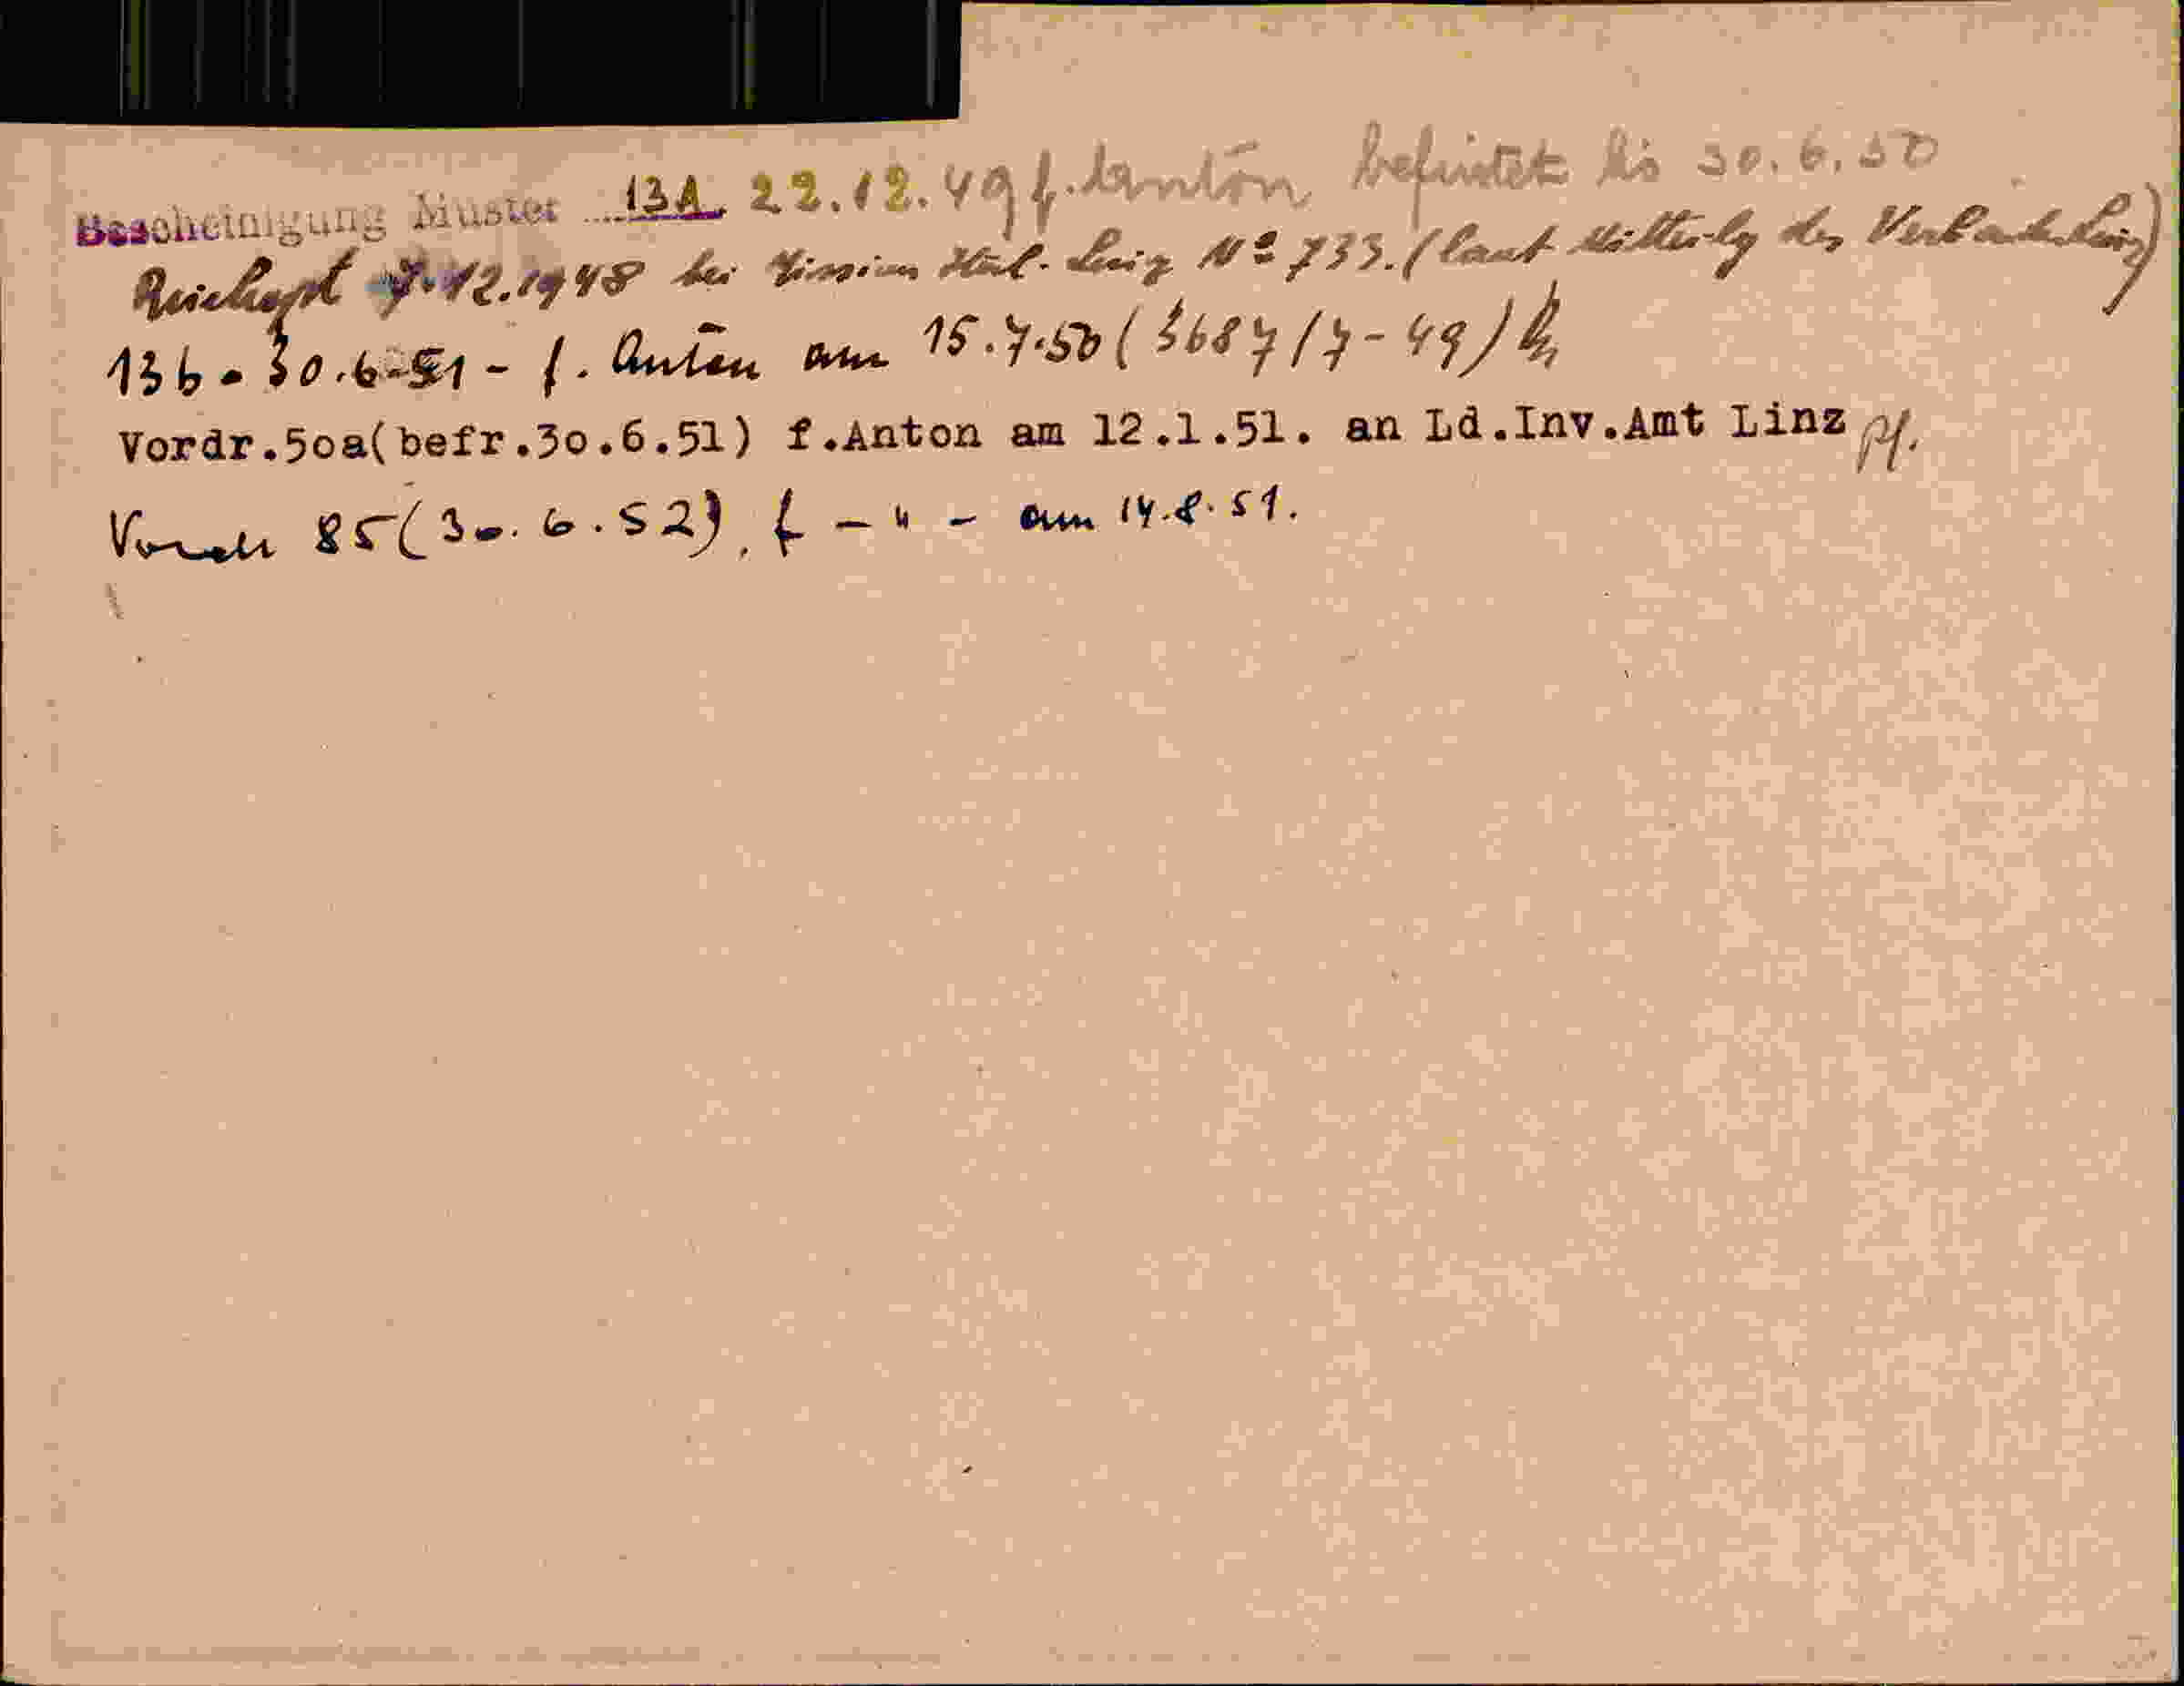 Bescheinigung Muster 13A. 22.12.49 f. Anton befristet bis 30.6.50
7.12.1948 bei Mission Linz Nº 733. (laut Mitteilg des Verbandes Linz)
13b. 30.6.51 - f. Anton am 15.7.50 (3687/7-49)
Vordr.5oa(befr.3o.6.51) f.Anton am 12.1.51. an Ld.Inv.Amt Linz
85 (30.6.52), f - " - am 14.8.51.